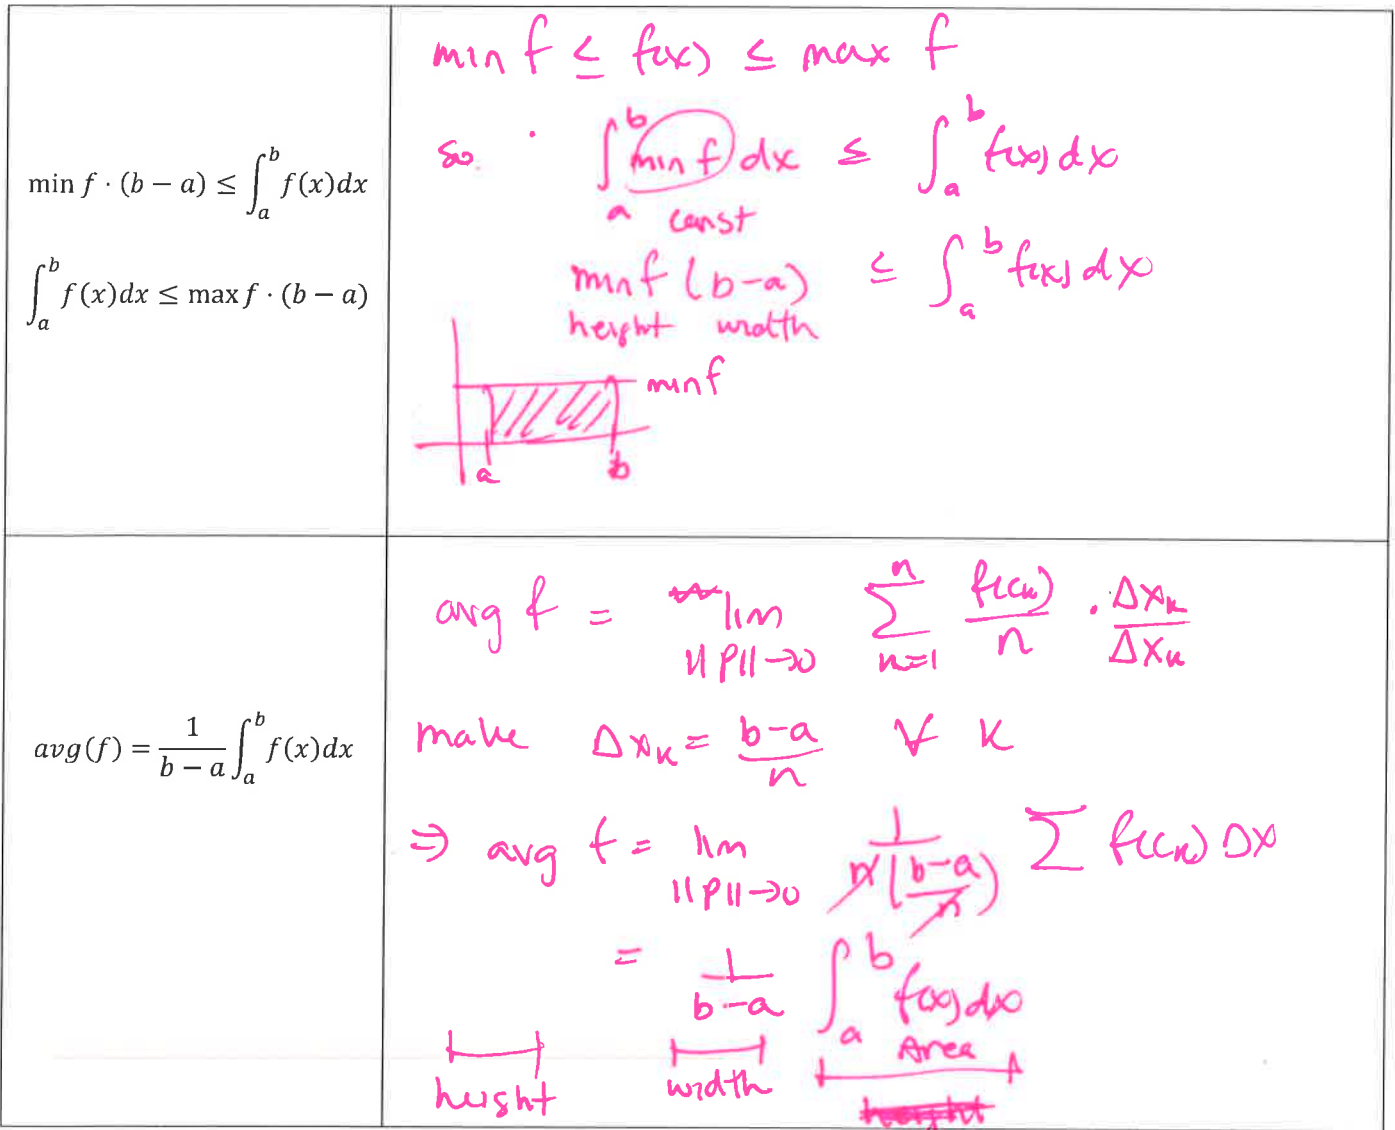 min f · (b − a) ≤ ∫_a^b f(x)dx
∫_a^b f(x)dx ≤ max f · (b − a)
min f ≤ f(x) ≤ max f
so ∫_a^b min f dx ≤ ∫_a^b f(x) dx
const
min f (b-a) ≤ ∫_a^b f(x) dx
height width
min f
a b
avg(f) = 1/(b − a) ∫_a^b f(x)dx
avg f = lim_{||P||→0} ∑_{n=1}^n f(c_k)/n · Δx_k/Δx_k
make Δx_k = (b-a)/n ∀ k
⇒ avg f = lim_{||P||→0} 1/(n((b-a)/n)) ∑ f(c_k) Δx
= 1/(b-a) ∫_a^b f(x) dx
height width Area
height